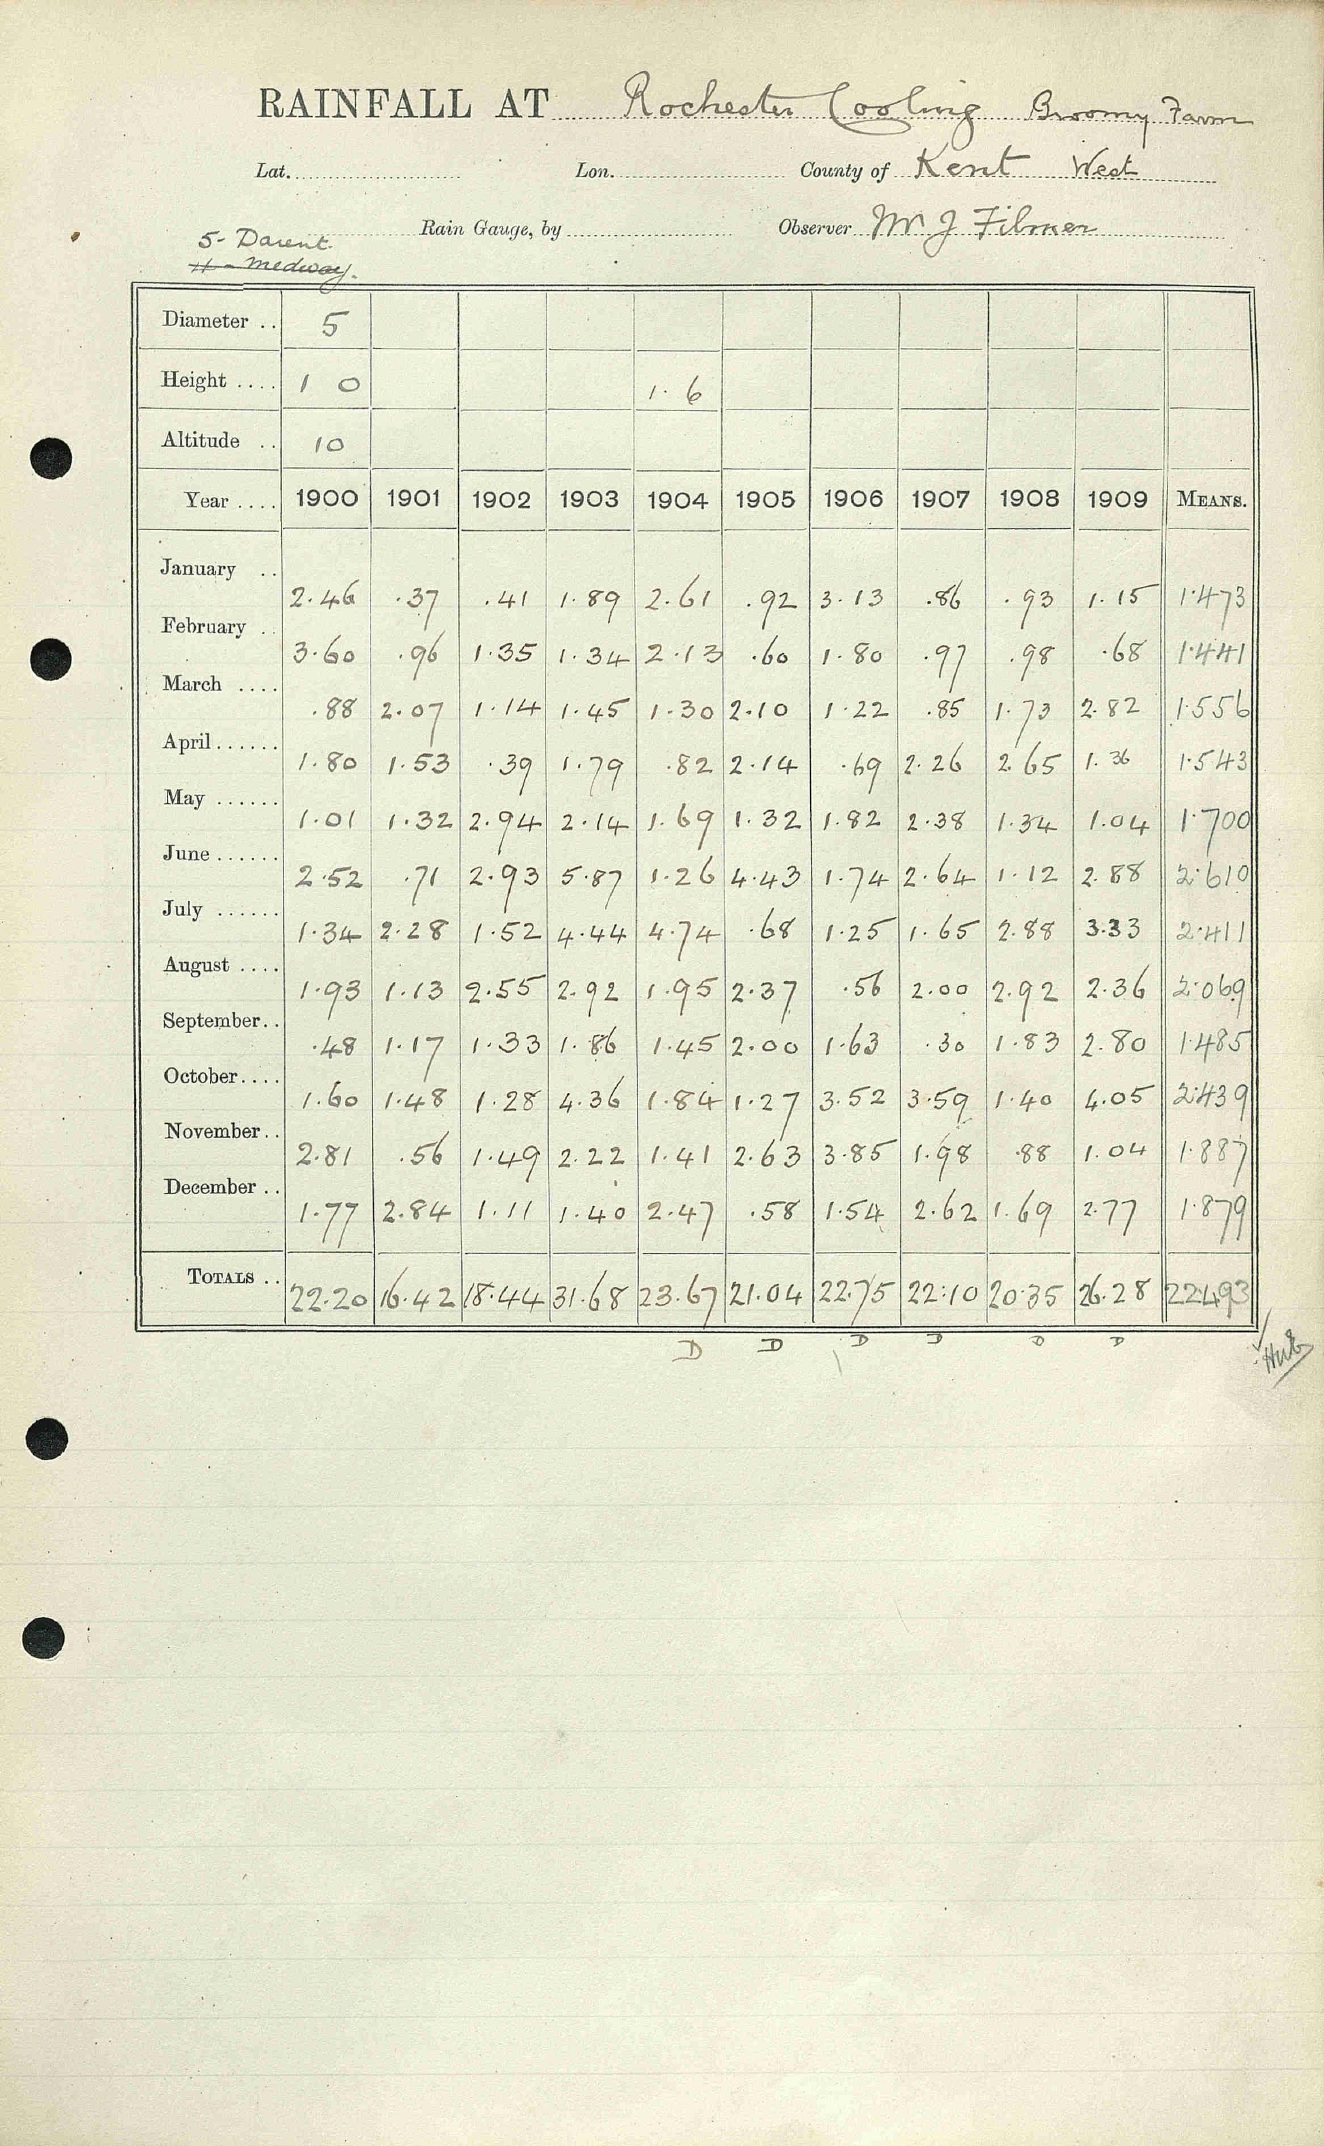 RAINFALL AT Rochester Cooling Broomy Farm
Lat. Lon. County of Kent West
Rain Gauge, by Observer Mr J Filmer
5- Darent.
11 - Medway.
Diameter .. 5
Height .... 1 0 1. 6
Altitude .. 10
Year .... 1900 1901 1902 1903 1904 1905 1906 1907 1908 1909 MEANS.
January .. 2.46 .37 .41 1.89 2.61 .92 3.13 .86 .93 1.15 1.473
February .. 3.60 .96 1.35 1.34 2.13 .60 1.80 .97 .98 .68 1.441
March .... .88 2.07 1.14 1.45 1.30 2.10 1.22 .85 1.73 2.82 1.556
April...... 1.80 1.53 .39 1.79 .82 2.14 .69 2.26 2.65 1.36 1.543
May ...... 1.01 1.32 2.94 2.14 1.69 1.32 1.82 2.38 1.34 1.04 1.700
June...... 2.52 .71 2.93 5.87 1.26 4.43 1.74 2.64 1.12 2.88 2.610
July ...... 1.34 2.28 1.52 4.44 4.74 .68 1.25 1.65 2.88 3.33 2.411
August .... 1.93 1.13 2.55 2.92 1.95 2.37 .56 2.00 2.92 2.36 2.069
September.. .48 1.17 1.33 1.86 1.45 2.00 1.63 .30 1.83 2.80 1.485
October.... 1.60 1.48 1.28 4.36 1.84 1.27 3.52 3.59 1.40 4.05 2.439
November.. 2.81 .56 1.49 2.22 1.41 2.63 3.85 1.98 .88 1.04 1.887
December .. 1.77 2.84 1.11 1.40 2.47 .58 1.54 2.62 1.69 2.77 1.879
TOTALS .. 22.20 16.42 18.44 31.68 23.67 21.04 22.75 22.10 20.35 26.28 22.493
D D D D D D